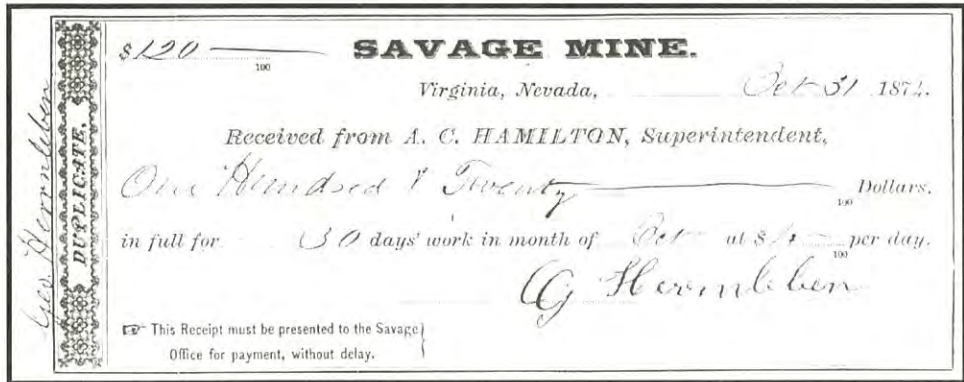 Geo Herrnleben
DUPLICATE.
$120 —
100
SAVAGE MINE.
Virginia, Nevada, Oct 31 1874.
Received from A. C. HAMILTON, Superintendent,
One Hundred & Twenty — Dollars.
100
in full for 30 days' work in month of Oct at $4 — per day.
100
G Herrnleben
☞ This Receipt must be presented to the Savage
Office for payment, without delay.